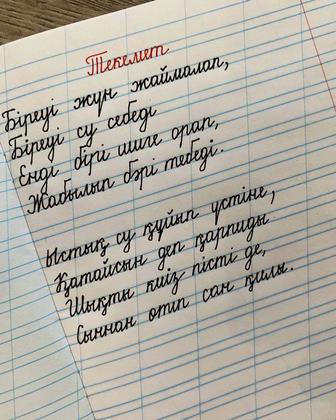 Текемет
Біреуі жүн жаймалап,
Біреуі су себеді
Енді бірі шиге орап,
Жабылып бәрі тебеді.
Ыстық су құйып үстіне,
Қатайсын деп қарпиды
Шықты киіз пісті де,
Сыннан өтіп сан қилы.